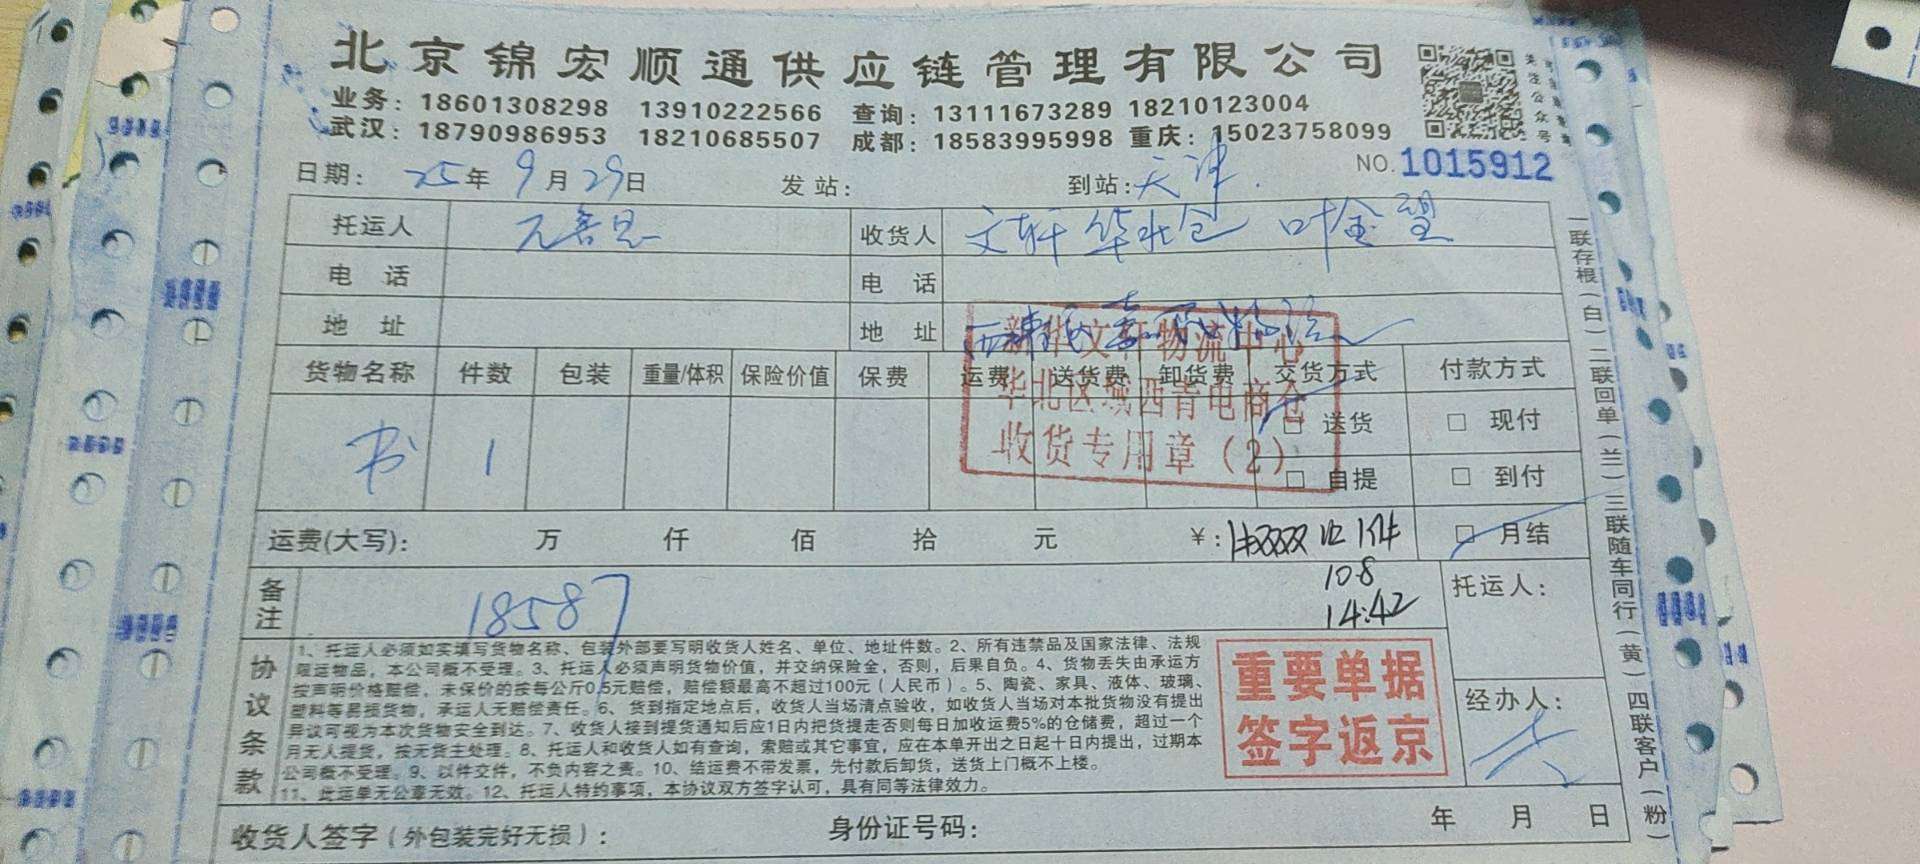 北京锦宏顺通供应链管理有限公司
业务：18601308298 13910222566 查询：13111673289 18210123004
武汉：18790986953 18210685507 成都：18583995998 重庆：15023758099
关注公众号
日期：25年9月29日 发站： 到站：天津
NO.1015912
托运人 元善思 收货人 文轩华北仓 叶金望
电 话 电 话
地 址 地 址
新华文轩物流中心
华北区域西青电商仓
收货专用章（2）
货物名称 件数 包装 重量/体积 保险价值 保费 运费 送货费 卸货费 交货方式 付款方式
书 1 □ 送货 □ 现付
□ 自提 □ 到付
运费(大写)： 万 仟 佰 拾 元 ￥： □ 月结
备注 18587
10.8
14:42
托运人：
协议条款
1、托运人必须如实填写货物名称、包装外部要写明收货人姓名、单位、地址件数。2、所有违禁品及国家法律、法规
限运物品，本公司概不受理。3、托运人必须声明货物价值，并交纳保险金，否则，后果自负。4、货物丢失由承运方
按声明价格赔偿，未保价的按每公斤0.5元赔偿，赔偿额最高不超过100元（人民币）。5、陶瓷、家具、液体、玻璃、
塑料等易损货物，承运人无赔偿责任。6、货到指定地点后，收货人当场清点验收，如收货人当场对本批货物没有提出
异议可视为本次货物安全到达。7、收货人接到提货通知后应1日内把货提走否则每日加收运费5%的仓储费，超过一个
月无人提货，按无货主处理。8、托运人和收货人如有查询，索赔或其它事宜，应在本单开出之日起十日内提出，过期本
公司概不受理。9、以件交件，不负内容之责。10、结运费不带发票，先付款后卸货，送货上门概不上楼。
11、此运单无公章无效。12、托运人特约事项，本协议双方签字认可，具有同等法律效力。
重要单据
签字返京
经办人：
收货人签字（外包装完好无损）： 身份证号码： 年 月 日
一联存根（白）二联回单（兰）三联随车同行（黄）四联客户（粉）